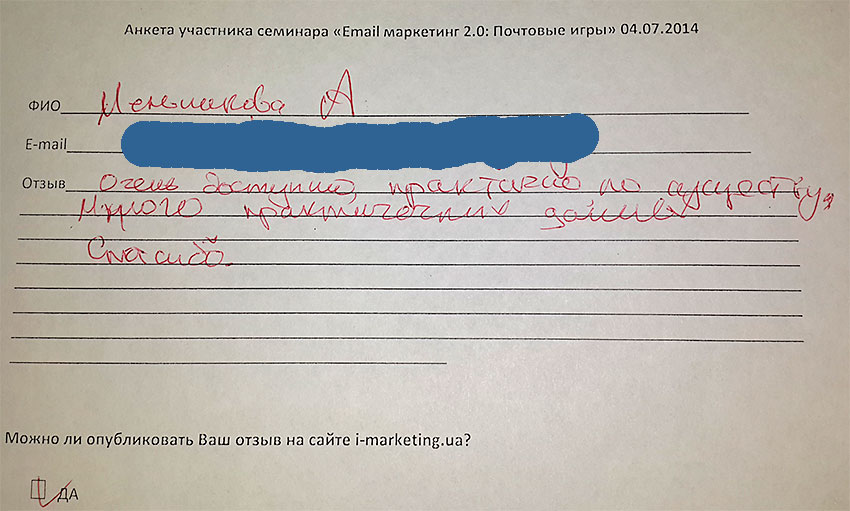 Анкета участника семинара «Email маркетинг 2.0: Почтовые игры» 04.07.2014
ФИО Меньшикова А
E-mail
Отзыв Очень доступно, практично по существу,
Много практических данных
Спасибо
Можно ли опубликовать Ваш отзыв на сайте i-marketing.ua?
ДА